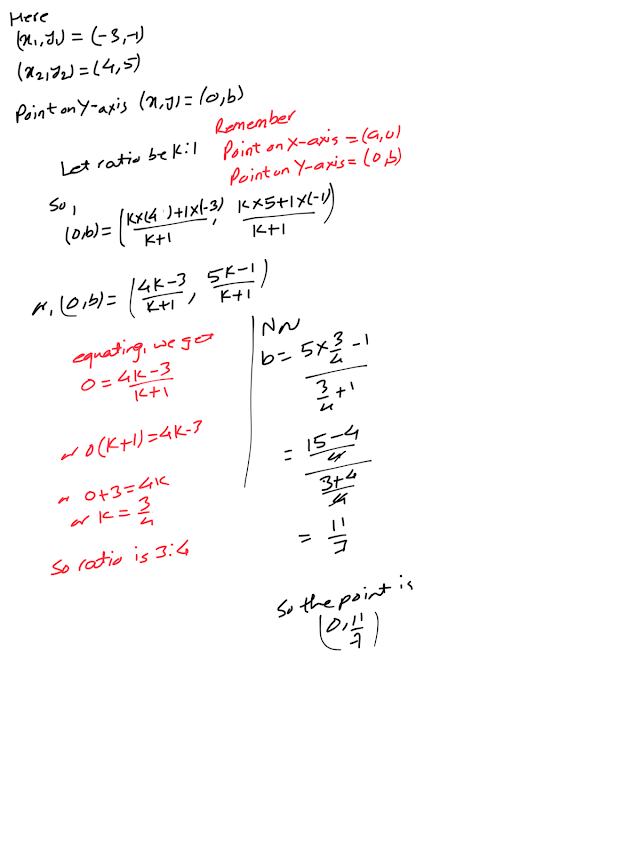 Here
(x₁,y₁) = (-3,-1)
(x₂,y₂) = (4,5)
Point on Y-axis (x,y) = (0,b)
Remember
Let ratio be K:1
Point on X-axis = (a,0)
Point on Y-axis = (0,b)
So,
(0,b) = ( (K×(4)+1×(-3))/(K+1), (K×5+1×(-1))/(K+1) )
or, (0,b) = ( (4K-3)/(K+1), (5K-1)/(K+1) )
equating, we get
0 = (4K-3)/(K+1)
or 0(K+1) = 4K-3
or 0+3 = 4K
or K = 3/4
So ratio is 3:4
b = (5×3/4 - 1)/(3/4 + 1)
= ((15-4)/4)/((3+4)/4)
= 11/7
So the point is
(0, 11/7)